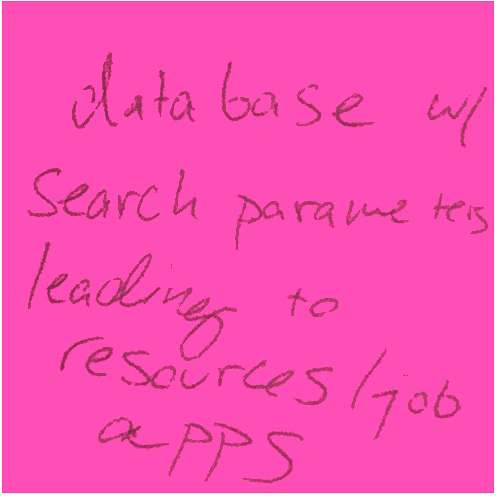 database w/
search parameters
leading to
resources/job
apps